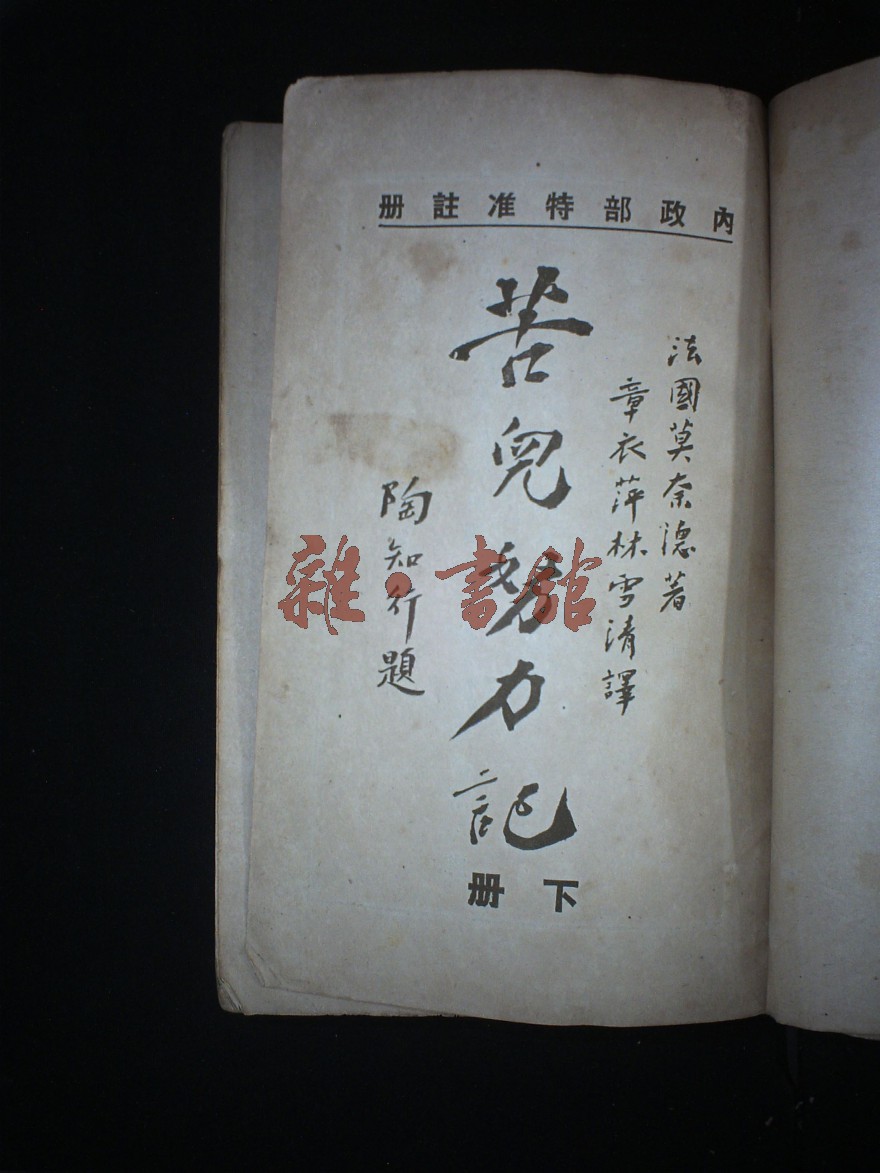 內政部特准註册
法國莫奈德著
章衣萍林雪清譯
苦兒努力記
下册
陶知行題
雜·書館